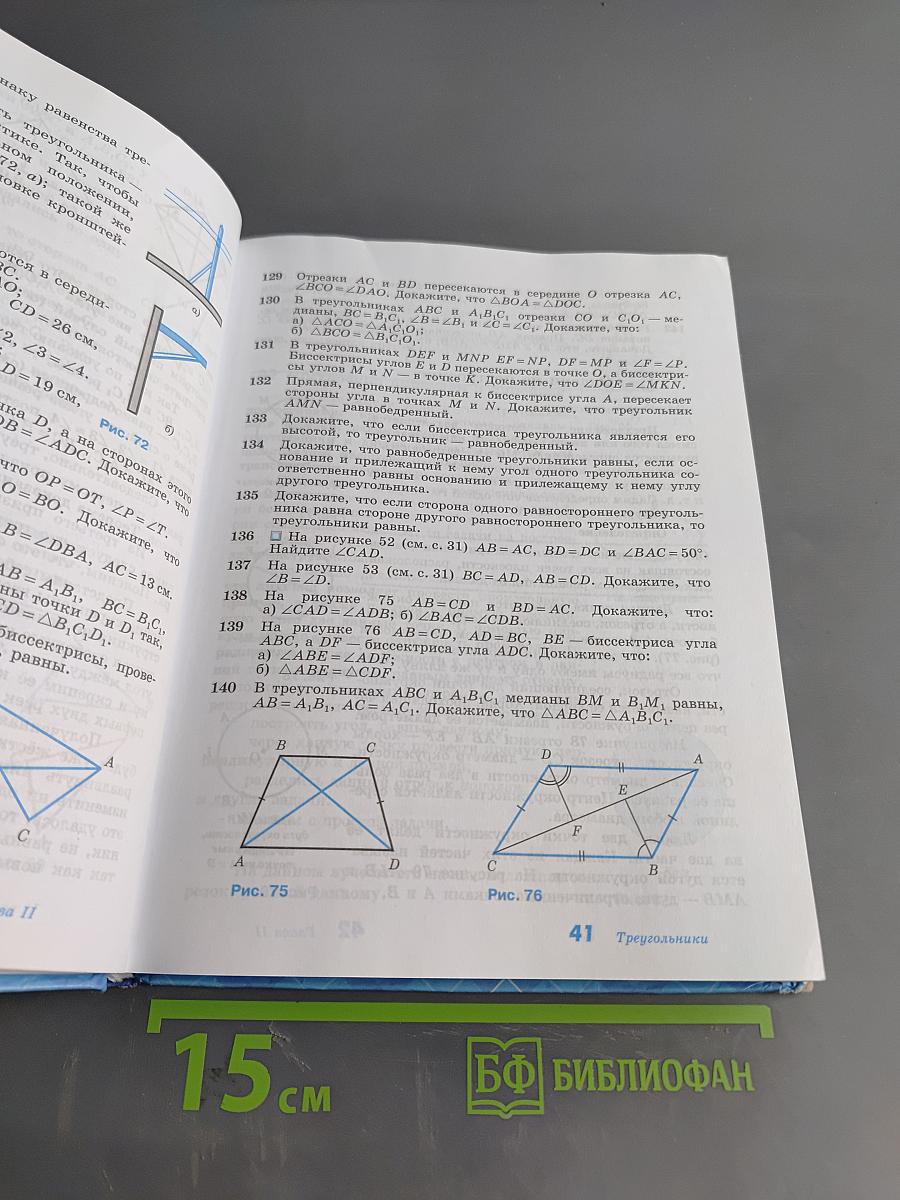 наку равенства тре-
ть треугольника —
тике. Так, чтобы
ном положении,
72, а); такой же
овке кронштей-
ются в середи-
ВС.
АО;
CD = 26 см,
2, ∠3 = ∠4.
D = 19 см,
нка D, а на сторонах этого
DB = ∠ADC. Докажите, что
что OP = OT, ∠P = ∠T.
O = BO. Докажите, что
B = ∠DBA, AC = 13 см.
AB = A₁B₁, BC = B₁C₁,
ны точки D и D₁ так,
CD = △B₁C₁D₁.
биссектрисы, прове-
равны.
а)
б)
Рис. 72
A
C
ва II
129 Отрезки AC и BD пересекаются в середине O отрезка AC,
∠BCO = ∠DAO. Докажите, что △BOA = △DOC.
130 В треугольниках ABC и A₁B₁C₁ отрезки CO и C₁O₁ — ме-
дианы, BC = B₁C₁, ∠B = ∠B₁ и ∠C = ∠C₁. Докажите, что:
а) △ACO = △A₁C₁O₁;
б) △BCO = △B₁C₁O₁.
131 В треугольниках DEF и MNP EF = NP, DF = MP и ∠F = ∠P.
Биссектрисы углов E и D пересекаются в точке O, а биссектри-
сы углов M и N — в точке K. Докажите, что ∠DOE = ∠MKN.
132 Прямая, перпендикулярная к биссектрисе угла A, пересекает
стороны угла в точках M и N. Докажите, что треугольник
AMN — равнобедренный.
133 Докажите, что если биссектриса треугольника является его
высотой, то треугольник — равнобедренный.
134 Докажите, что равнобедренные треугольники равны, если ос-
нование и прилежащий к нему угол одного треугольника со-
ответственно равны основанию и прилежащему к нему углу
другого треугольника.
135 Докажите, что если сторона одного равностороннего треуголь-
ника равна стороне другого равностороннего треугольника, то
треугольники равны.
136 На рисунке 52 (см. с. 31) AB = AC, BD = DC и ∠BAC = 50°.
Найдите ∠CAD.
137 На рисунке 53 (см. с. 31) BC = AD, AB = CD. Докажите, что
∠B = ∠D.
138 На рисунке 75 AB = CD и BD = AC. Докажите, что:
а) ∠CAD = ∠ADB; б) ∠BAC = ∠CDB.
139 На рисунке 76 AB = CD, AD = BC, BE — биссектриса угла
ABC, а DF — биссектриса угла ADC. Докажите, что:
а) ∠ABE = ∠ADF;
б) △ABE = △CDF.
140 В треугольниках ABC и A₁B₁C₁ медианы BM и B₁M₁ равны,
AB = A₁B₁, AC = A₁C₁. Докажите, что △ABC = △A₁B₁C₁.
B C
A D
Рис. 75
D A
E
F
C B
Рис. 76
41 Треугольники
15 см
БФ БИБЛИОФАН